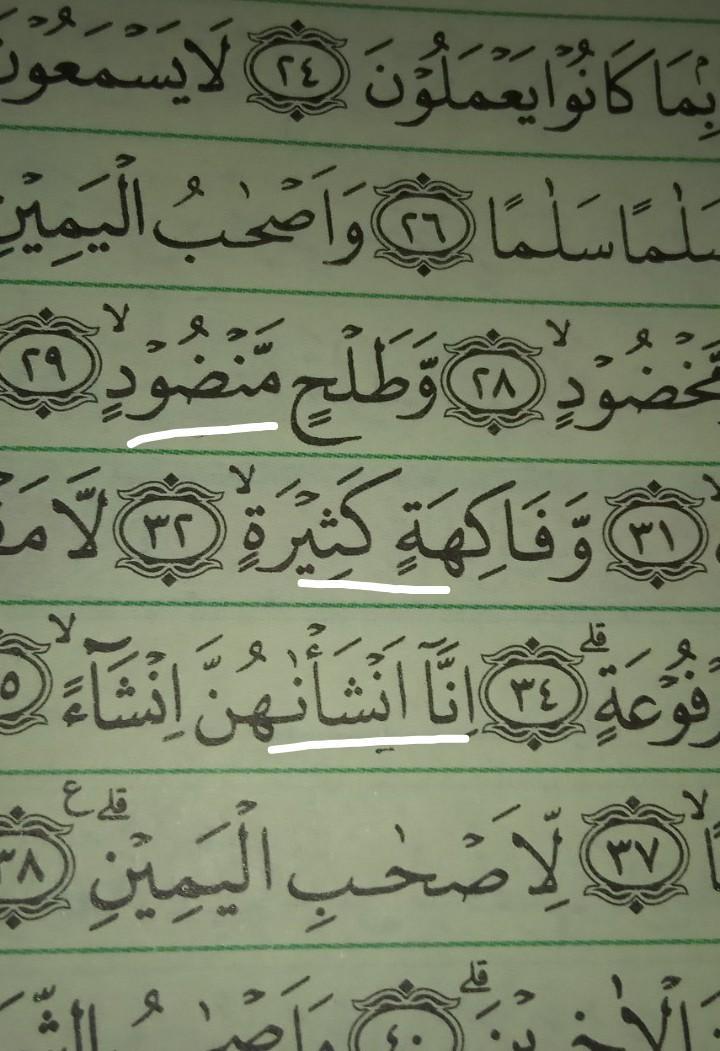 بِمَا كَانُوْا يَعْمَلُوْنَ ﴿٢٤﴾ لَا يَسْمَعُوْنَ
سَلٰمًا سَلٰمًا ﴿٢٦﴾ وَاَصْحٰبُ الْيَمِيْنِ
مَّخْضُوْدٍۙ ﴿٢٨﴾ وَّطَلْحٍ مَّنْضُوْدٍۙ ﴿٢٩﴾
﴿٣١﴾ وَّفَاكِهَةٍ كَثِيْرَةٍۙ ﴿٣٢﴾ لَّا
ﰲﰳ﴿٣٤﴾ اِنَّآ اَنْشَأْنٰهُنَّ اِنْشَاۤءًۙ
﴿٣٧﴾ لِّاَصْحٰبِ الْيَمِيْنِۗ ع ﴿٣٨﴾
الْاٰخِرِيْنَۗ ﴿٤٠﴾ وَاَصْحٰبُ